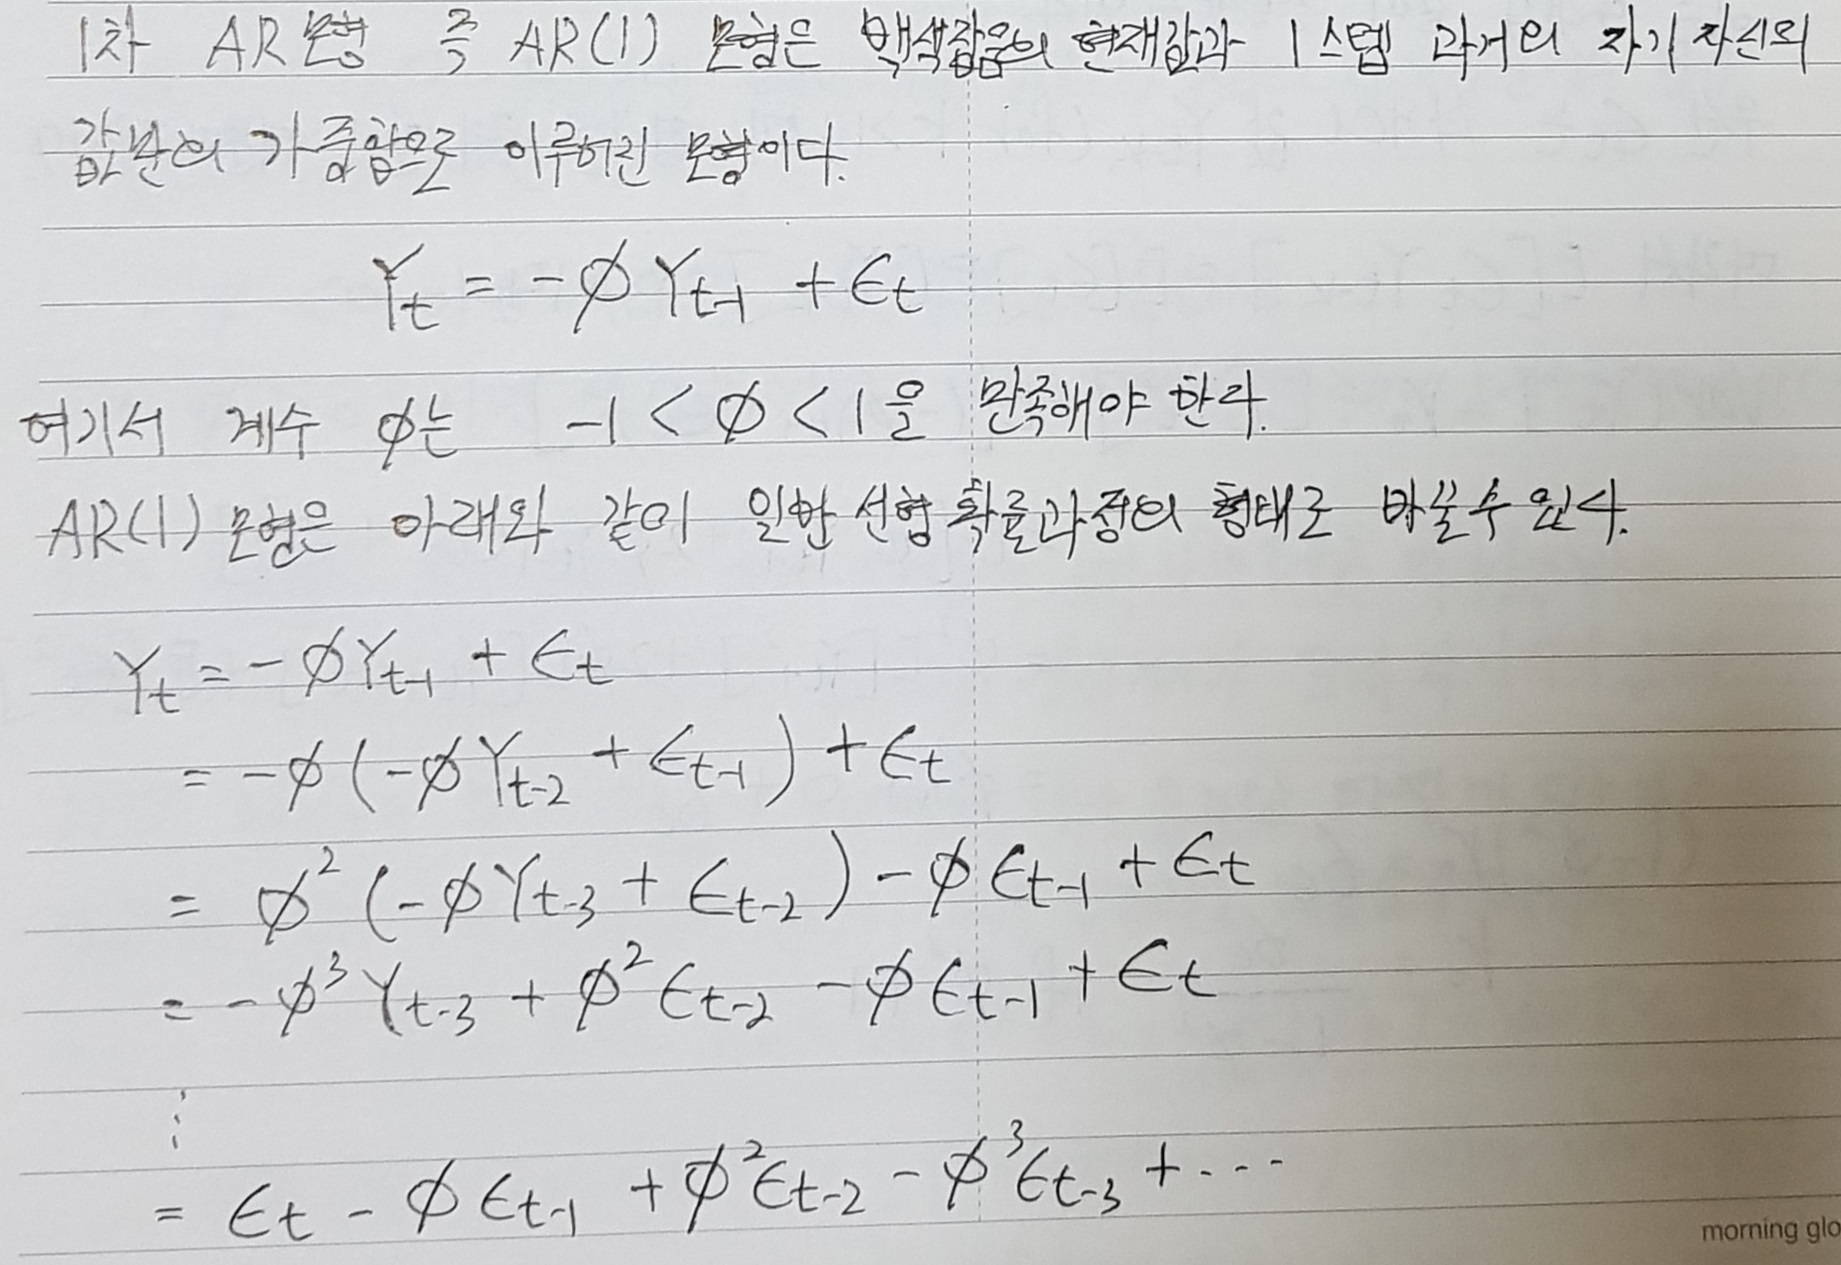 1차 AR모형 즉 AR(1) 모형은 백색잡음의 현재값과 1스텝 과거의 자기 자신의
값만의 가중합으로 이루어진 모형이다.
Yt = -ϕYt-1 + ϵt
여기서 계수 ϕ는 -1 < ϕ < 1을 만족해야 한다.
AR(1) 모형은 아래와 같이 일반 선형 확률과정의 형태로 바꿀 수 있다.
Yt = -ϕYt-1 + ϵt
= -ϕ(-ϕYt-2 + ϵt-1) + ϵt
= ϕ²(-ϕYt-3 + ϵt-2) - ϕϵt-1 + ϵt
= -ϕ³Yt-3 + ϕ²ϵt-2 - ϕϵt-1 + ϵt
⋮
= ϵt - ϕϵt-1 + ϕ²ϵt-2 - ϕ³ϵt-3 + ...
morning glo